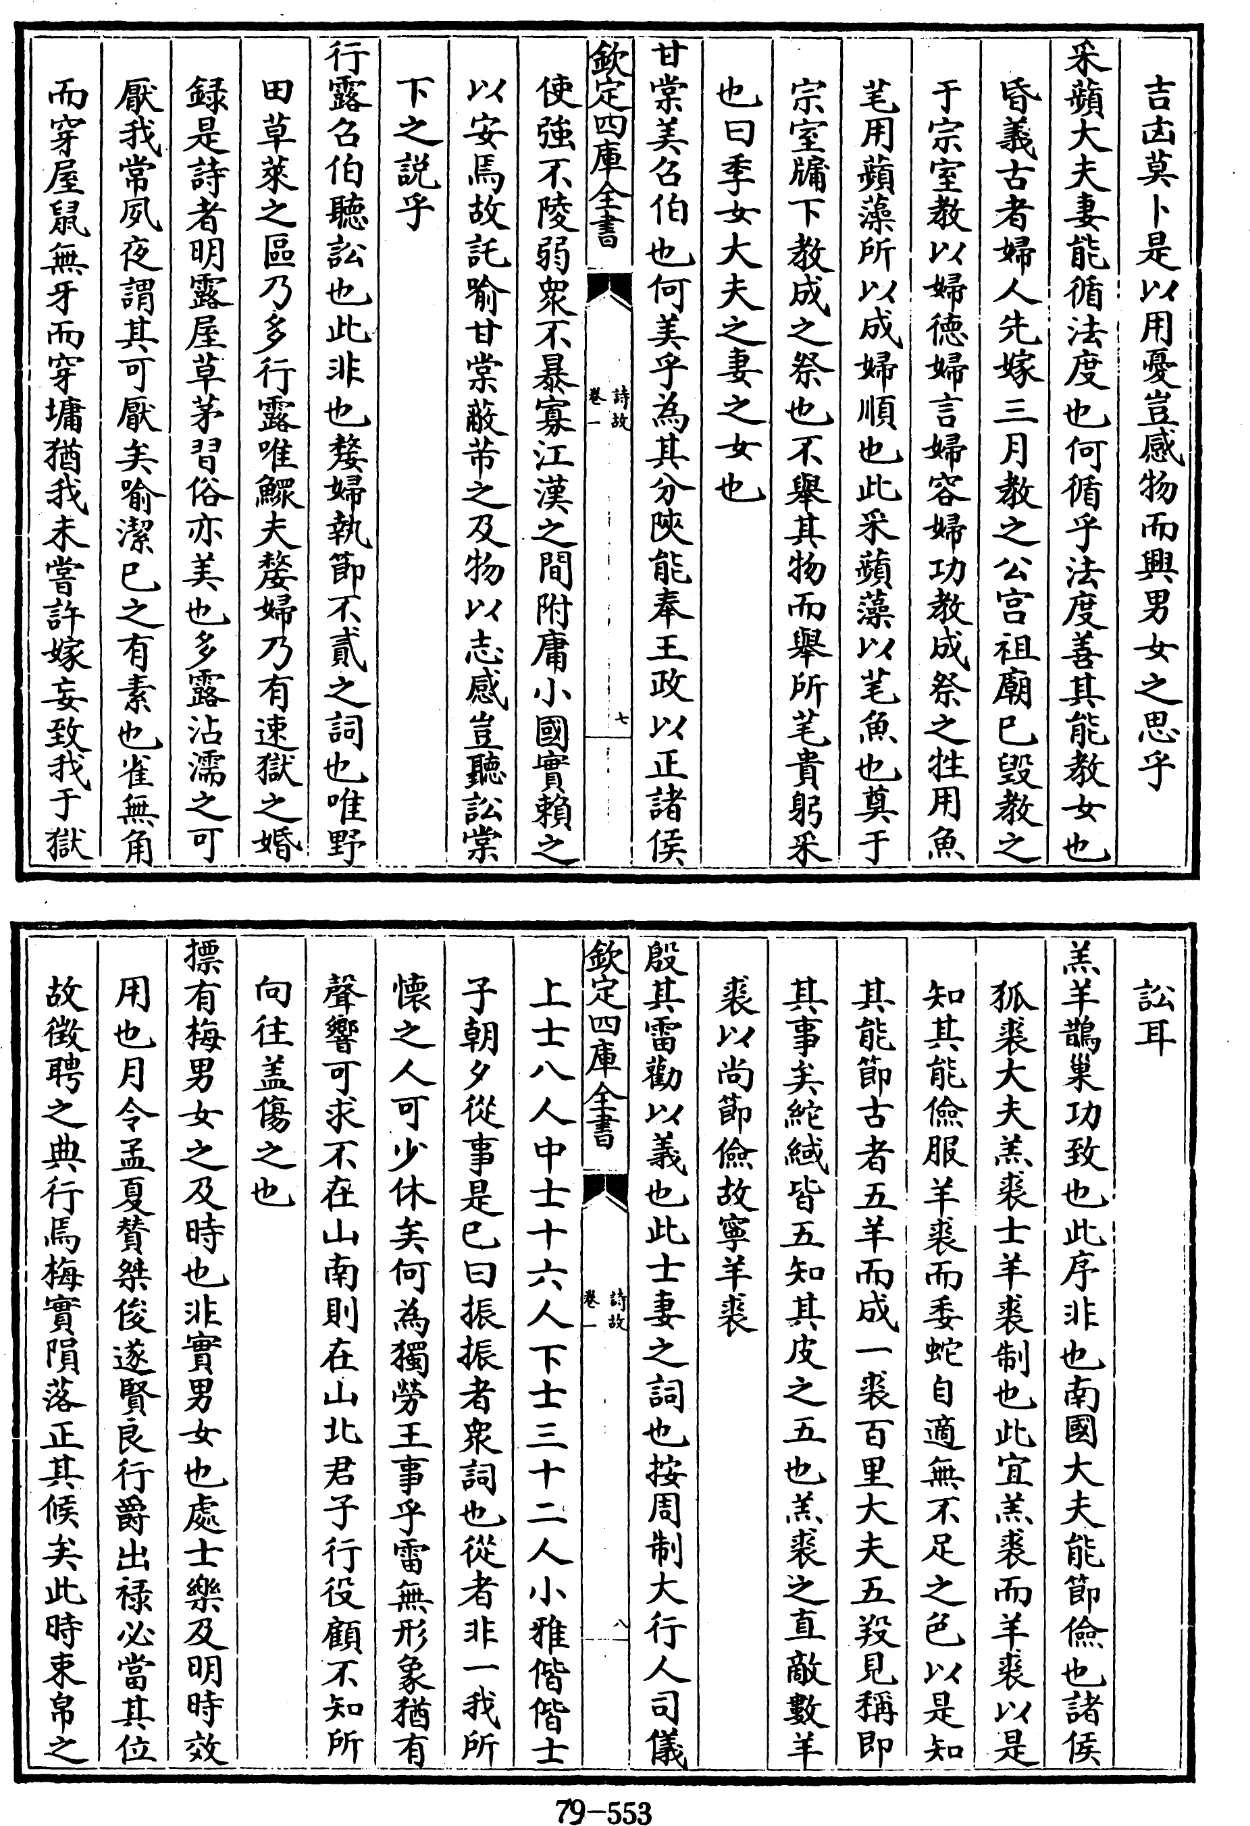 吉凶莫卜是以用憂豈感物而興男女之思乎
采蘋大夫妻能循法度也何循乎法度善其能教女也
昏義古者婦人先嫁三月教之公宫祖廟已毀教之
于宗室教以婦德婦言婦容婦功教成祭之牲用魚
芼用蘋藻所以成婦順也此采蘋藻以芼魚也奠于
宗室牖下教成之祭也不舉其物而舉所芼貴躬采
也曰季女大夫之妻之女也
甘棠美召伯也何美乎為其分陜能奉王政以正諸侯
欽定四庫全書
詩故
卷一
七
使強不陵弱衆不暴寡江漢之間附庸小國實賴之
以安焉故託喻甘棠蔽芾之及物以志感豈聽訟棠
下之説乎
行露召伯聽訟也此非也嫠婦執節不貳之詞也唯野
田草萊之區乃多行露唯鰥夫嫠婦乃有速獄之婚
録是詩者明露屋草茅習俗亦美也多露沾濡之可
厭我常夙夜謂其可厭矣喻潔已之有素也雀無角
而穿屋鼠無牙而穿墉猶我未嘗許嫁妄致我于獄
訟耳
羔羊鵲巢功致也此序非也南國大夫能節儉也諸侯
狐裘大夫羔裘士羊裘制也此宜羔裘而羊裘以是
知其能儉服羊裘而委蛇自適無不足之色以是知
其能節古者五羊而成一裘百里大夫五羖見稱即
其事矣紽緎皆五知其皮之五也羔裘之直敵數羊
裘以尚節儉故寧羊裘
殷其雷勸以義也此士妻之詞也按周制大行人司儀
欽定四庫全書
詩故
卷一
八
上士八人中士十六人下士三十二人小雅偕偕士
子朝夕從事是已曰振振者衆詞也從者非一我所
懐之人可少休矣何為獨勞王事乎雷無形象猶有
聲響可求不在山南則在山北君子行役顧不知所
向往盖傷之也
摽有梅男女之及時也非實男女也處士樂及明時效
用也月令孟夏賛桀俊遂賢良行爵出禄必當其位
故徵聘之典行焉梅實隕落正其候矣此時束帛之
79-553